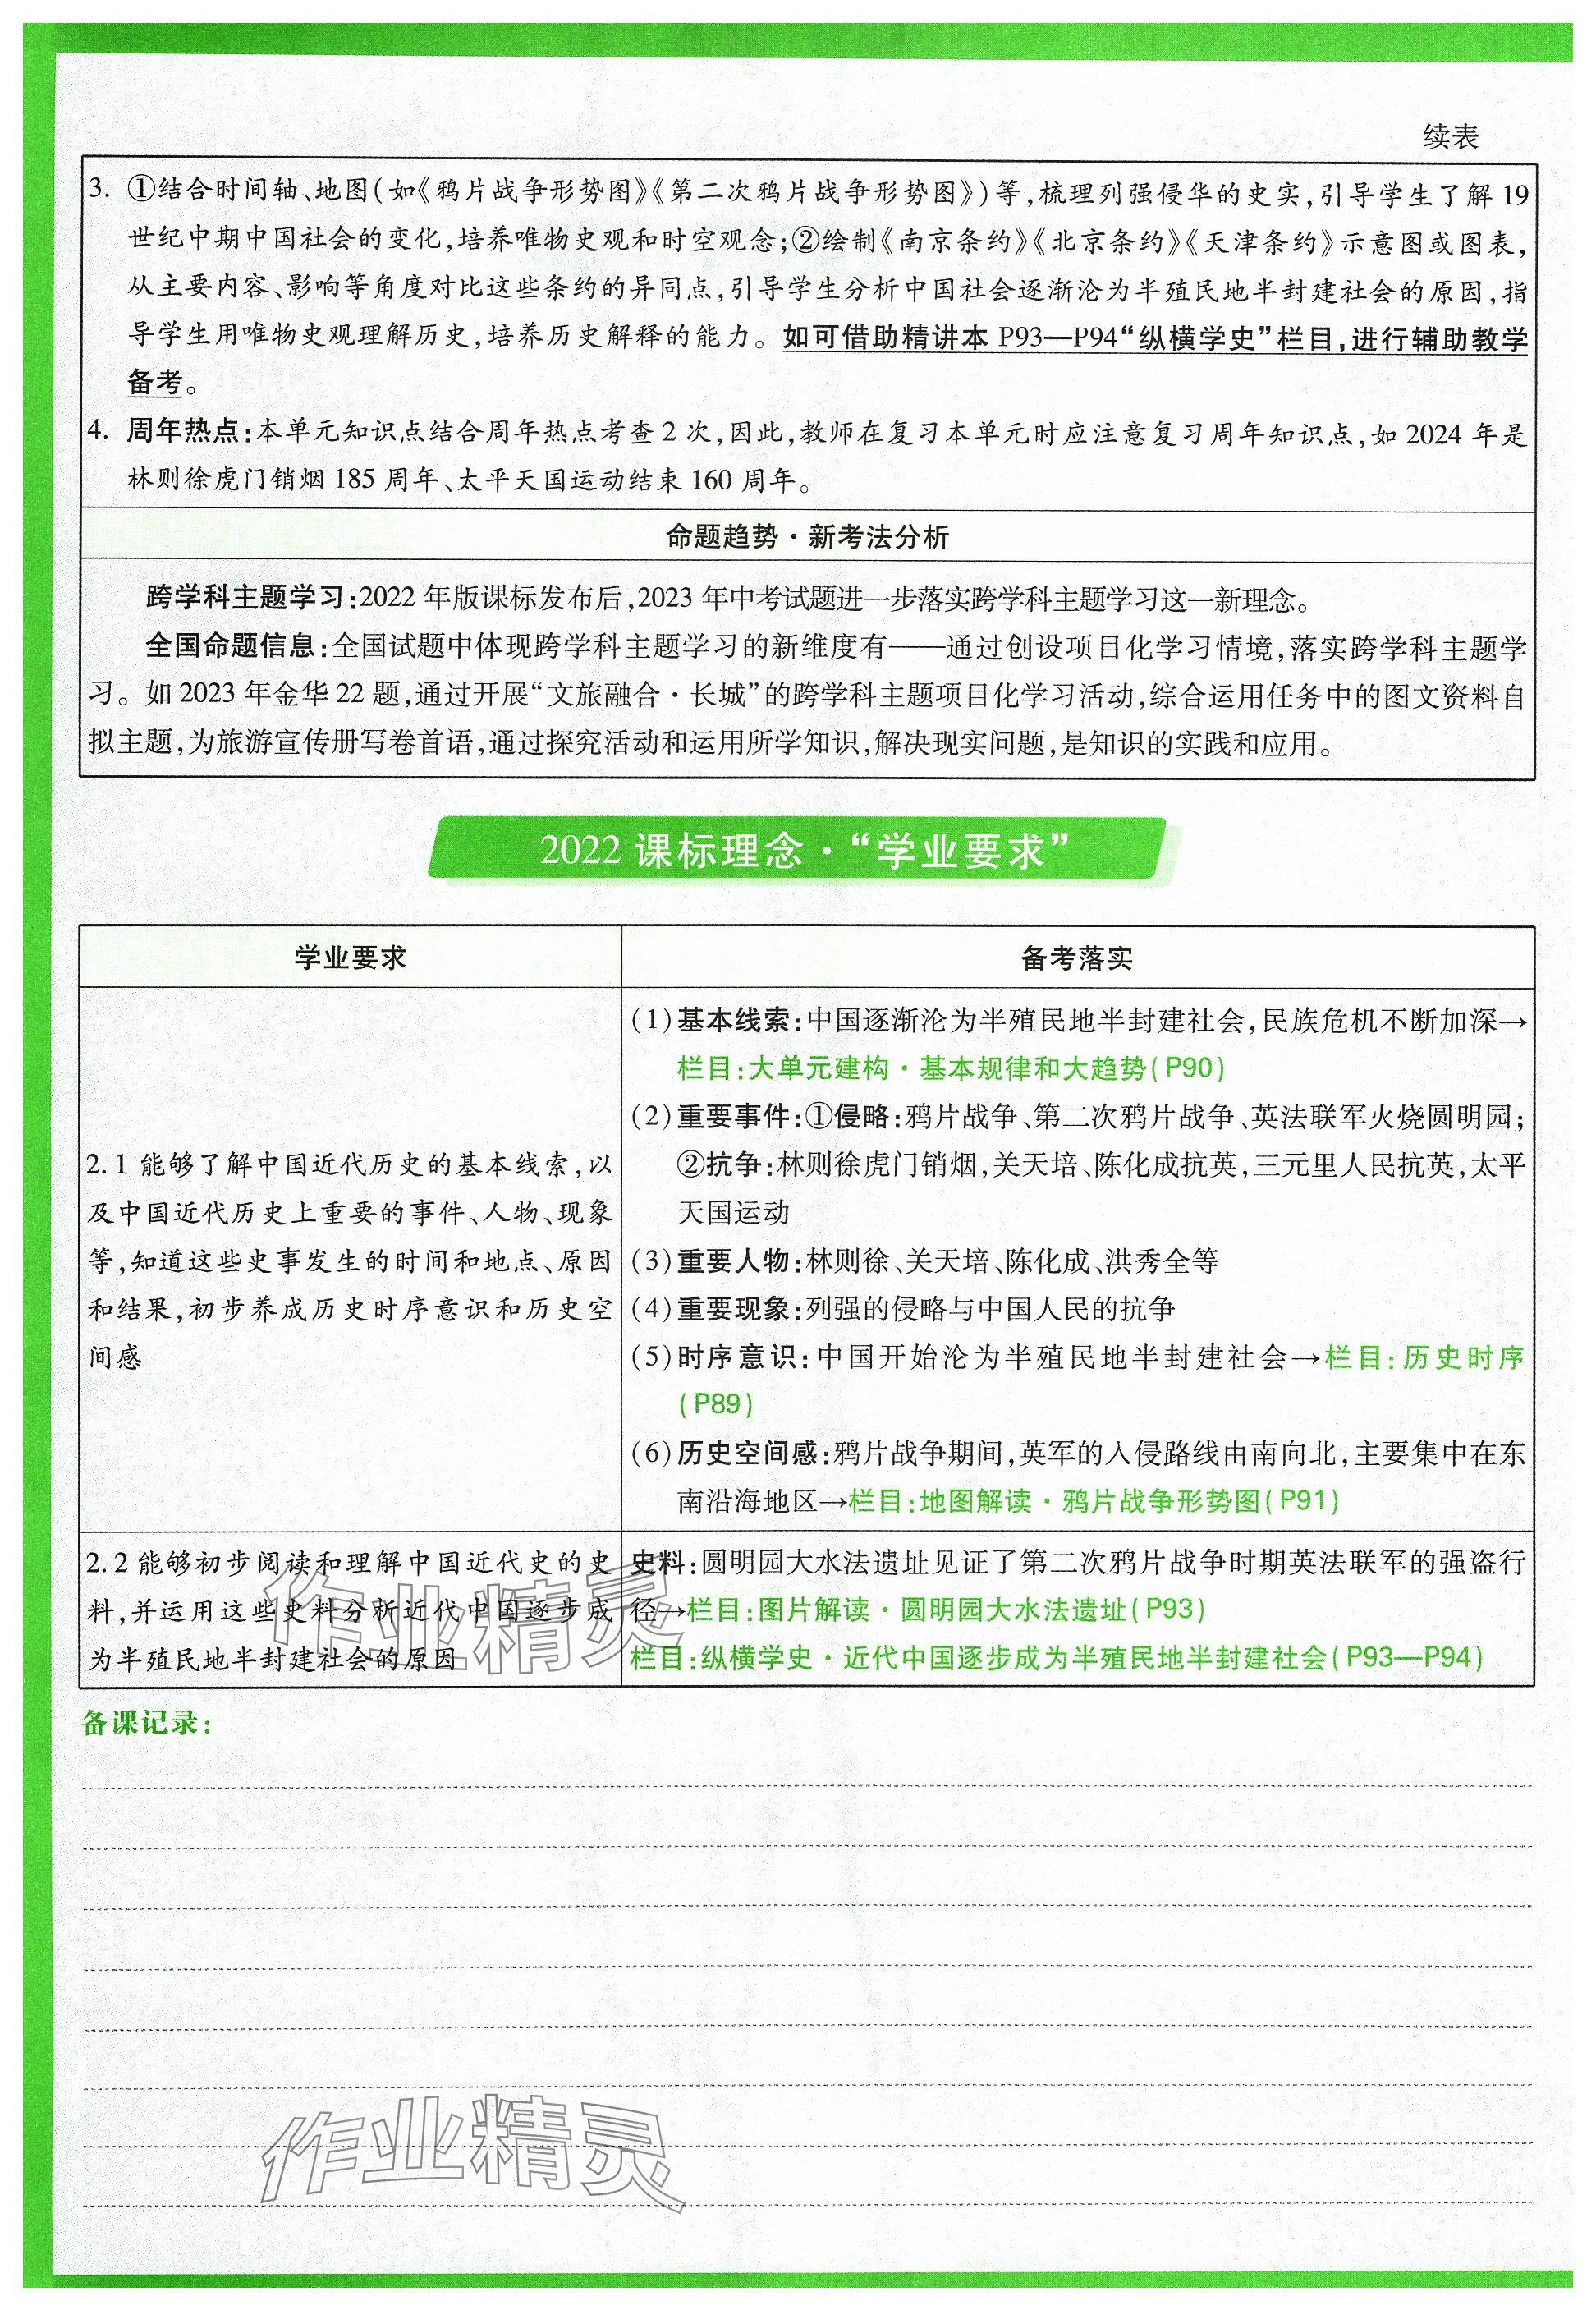 续表
3. ①结合时间轴、地图(如《鸦片战争形势图》《第二次鸦片战争形势图》)等,梳理列强侵华的史实,引导学生了解19
世纪中期中国社会的变化,培养唯物史观和时空观念;②绘制《南京条约》《北京条约》《天津条约》示意图或图表,
从主要内容、影响等角度对比这些条约的异同点,引导学生分析中国社会逐渐沦为半殖民地半封建社会的原因,指
导学生用唯物史观理解历史,培养历史解释的能力。如可借助精讲本 P93—P94“纵横学史”栏目,进行辅助教学
备考。
4. 周年热点:本单元知识点结合周年热点考查2次,因此,教师在复习本单元时应注意复习周年知识点,如2024年是
林则徐虎门销烟185周年、太平天国运动结束160周年。
命题趋势·新考法分析
跨学科主题学习:2022年版课标发布后,2023年中考试题进一步落实跨学科主题学习这一新理念。
全国命题信息:全国试题中体现跨学科主题学习的新维度有——通过创设项目化学习情境,落实跨学科主题学
习。如2023年金华22题,通过开展“文旅融合·长城”的跨学科主题项目化学习活动,综合运用任务中的图文资料自
拟主题,为旅游宣传册写卷首语,通过探究活动和运用所学知识,解决现实问题,是知识的实践和应用。
2022课标理念·“学业要求”
学业要求
备考落实
2.1 能够了解中国近代历史的基本线索,以
及中国近代历史上重要的事件、人物、现象
等,知道这些史事发生的时间和地点、原因
和结果,初步养成历史时序意识和历史空
间感
(1)基本线索:中国逐渐沦为半殖民地半封建社会,民族危机不断加深→
栏目:大单元建构·基本规律和大趋势(P90)
(2)重要事件:①侵略:鸦片战争、第二次鸦片战争、英法联军火烧圆明园;
②抗争:林则徐虎门销烟,关天培、陈化成抗英,三元里人民抗英,太平
天国运动
(3)重要人物:林则徐、关天培、陈化成、洪秀全等
(4)重要现象:列强的侵略与中国人民的抗争
(5)时序意识:中国开始沦为半殖民地半封建社会→栏目:历史时序
(P89)
(6)历史空间感:鸦片战争期间,英军的入侵路线由南向北,主要集中在东
南沿海地区→栏目:地图解读·鸦片战争形势图(P91)
2.2 能够初步阅读和理解中国近代史的史
料,并运用这些史料分析近代中国逐步成
为半殖民地半封建社会的原因
史料:圆明园大水法遗址见证了第二次鸦片战争时期英法联军的强盗行
径→栏目:图片解读·圆明园大水法遗址(P93)
栏目:纵横学史·近代中国逐步成为半殖民地半封建社会(P93—P94)
作业精灵
备课记录:
作业精灵